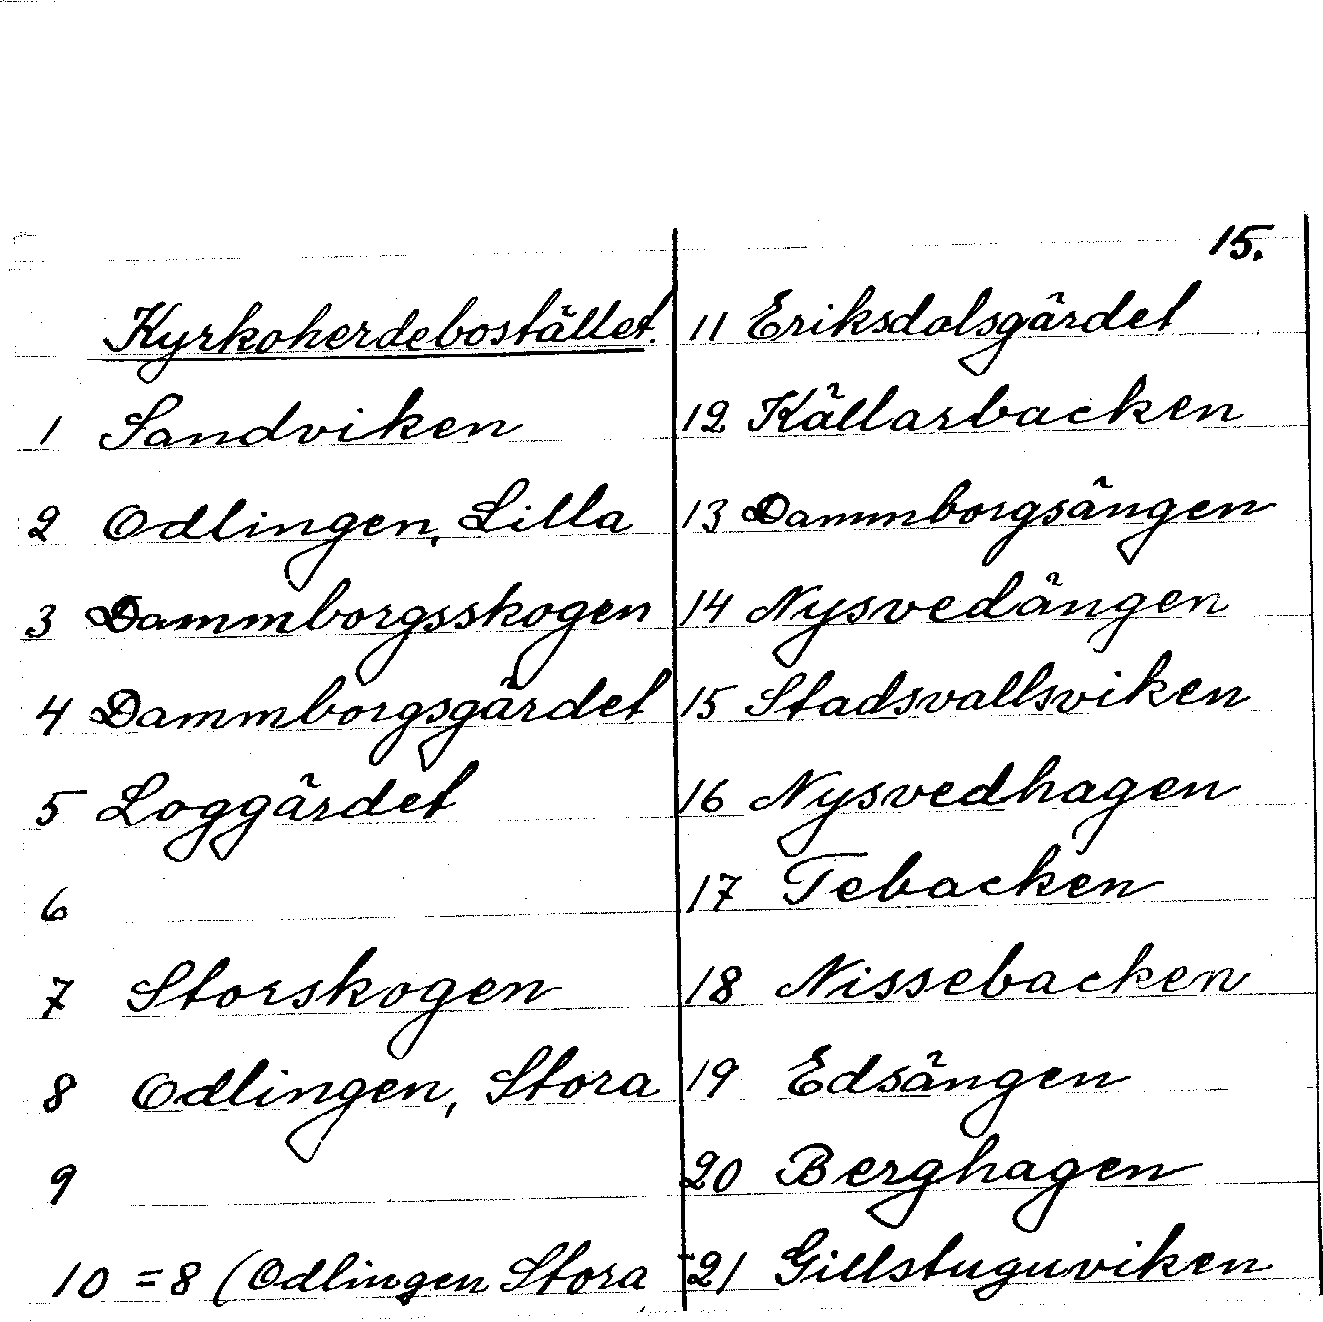 15.
Kyrkoherdebostället.
1 Sandviken
2 Odlingen, Lilla
3 Dammborgsskogen
4 Dammborgsgärdet
5 Loggärdet
6
7 Storskogen
8 Odlingen, Stora
9
10 = 8 (Odlingen Stora
11 Eriksdalsgärdet
12 Källarbacken
13 Dammborgsängen
14 Nysvedängen
15 Stadsvallsviken
16 Nysvedhagen
17 Tebacken
18 Nissebacken
19 Edsängen
20 Berghagen
21 Gillstuguviken